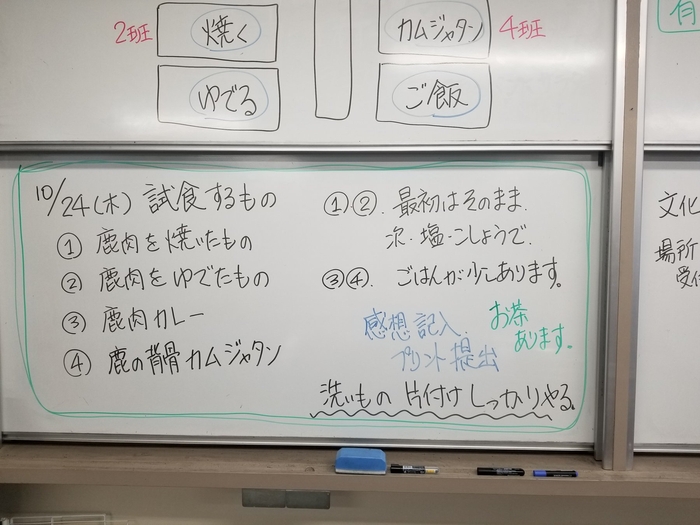 2班
焼く
カムジャタン
4班
ゆでる
ご飯
有
10/24(木) 試食するもの
① 鹿肉を焼いたもの
② 鹿肉をゆでたもの
③ 鹿肉カレー
④ 鹿の背骨カムジャタン
①②. 最初はそのまま.
次.塩・こしょうで.
③④. ごはんが少しあります。
感想記入.
プリント提出
お茶
あります。
洗いもの 片付けしっかりやる。
文化
場所
受付